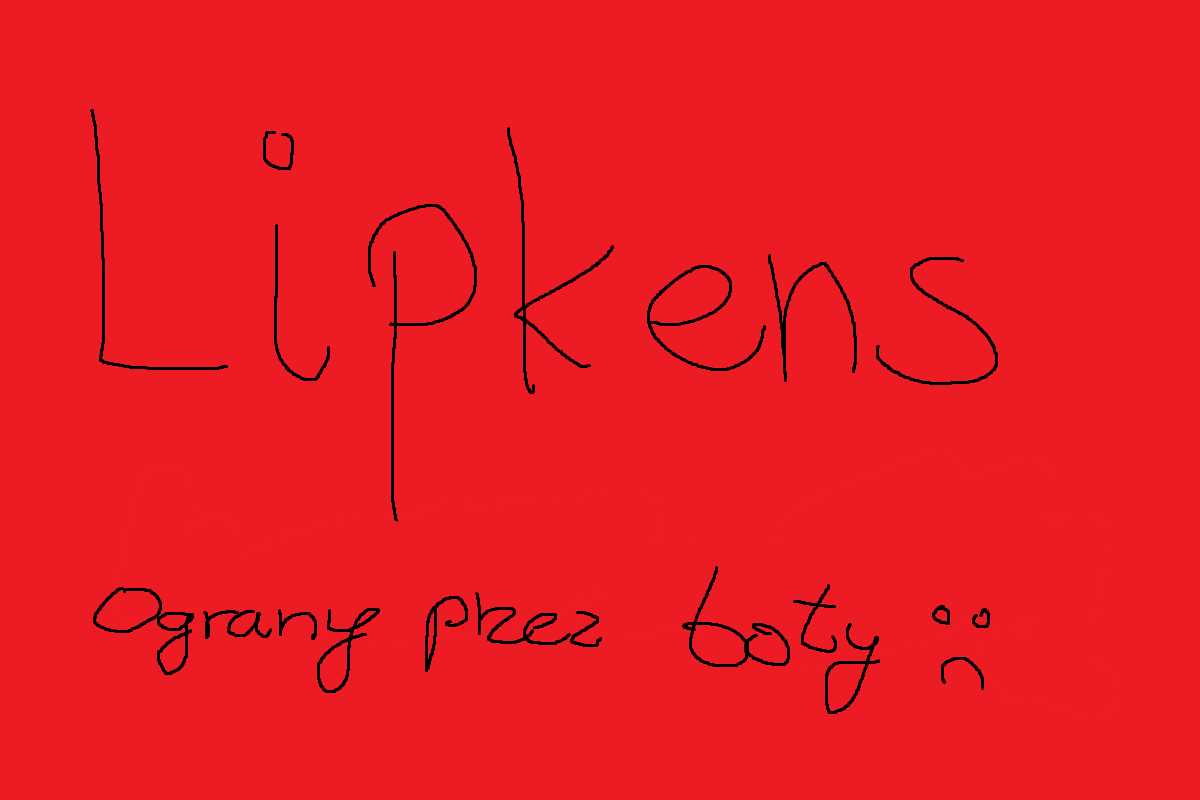 Lipkens
Ograny przez boty :(